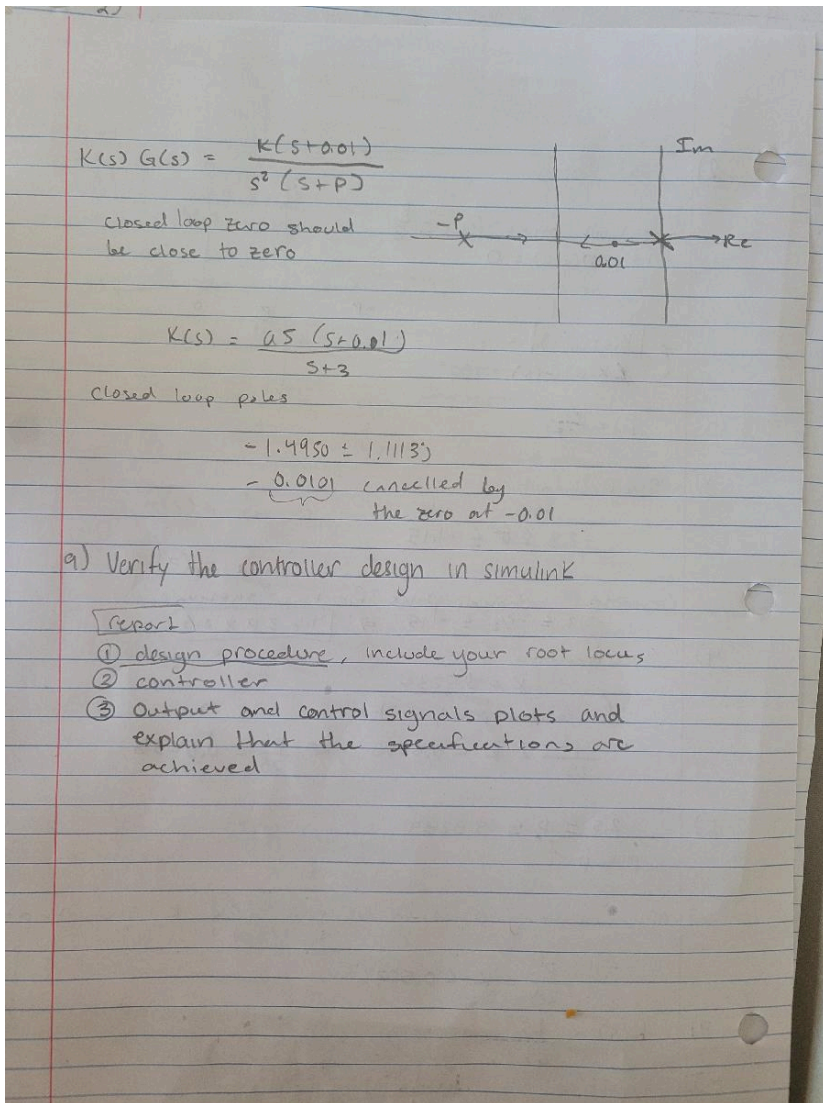 2)
K(s) G(s) = K(s+0.01) / s² (s+P)
Im
closed loop zero should
be close to zero
-P
Re
0.01
K(s) = 0.5 (s+0.01) / s+3
closed loop poles
-1.4950 ± 1.1113j
-0.0101 cancelled by
the zero at -0.01
a) Verify the controller design in simulink
report
① design procedure, include your root locus
② controller
③ Output and control signals plots and
explain that the specifications are
achieved